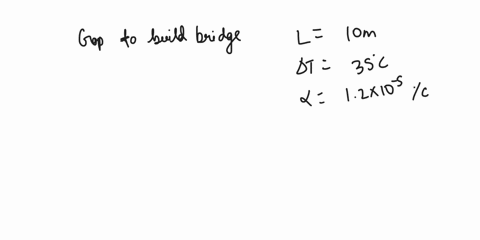 Gap to build bridge
L = 10m
ΔT = 35°C
α = 1.2×10⁻⁵ /°C